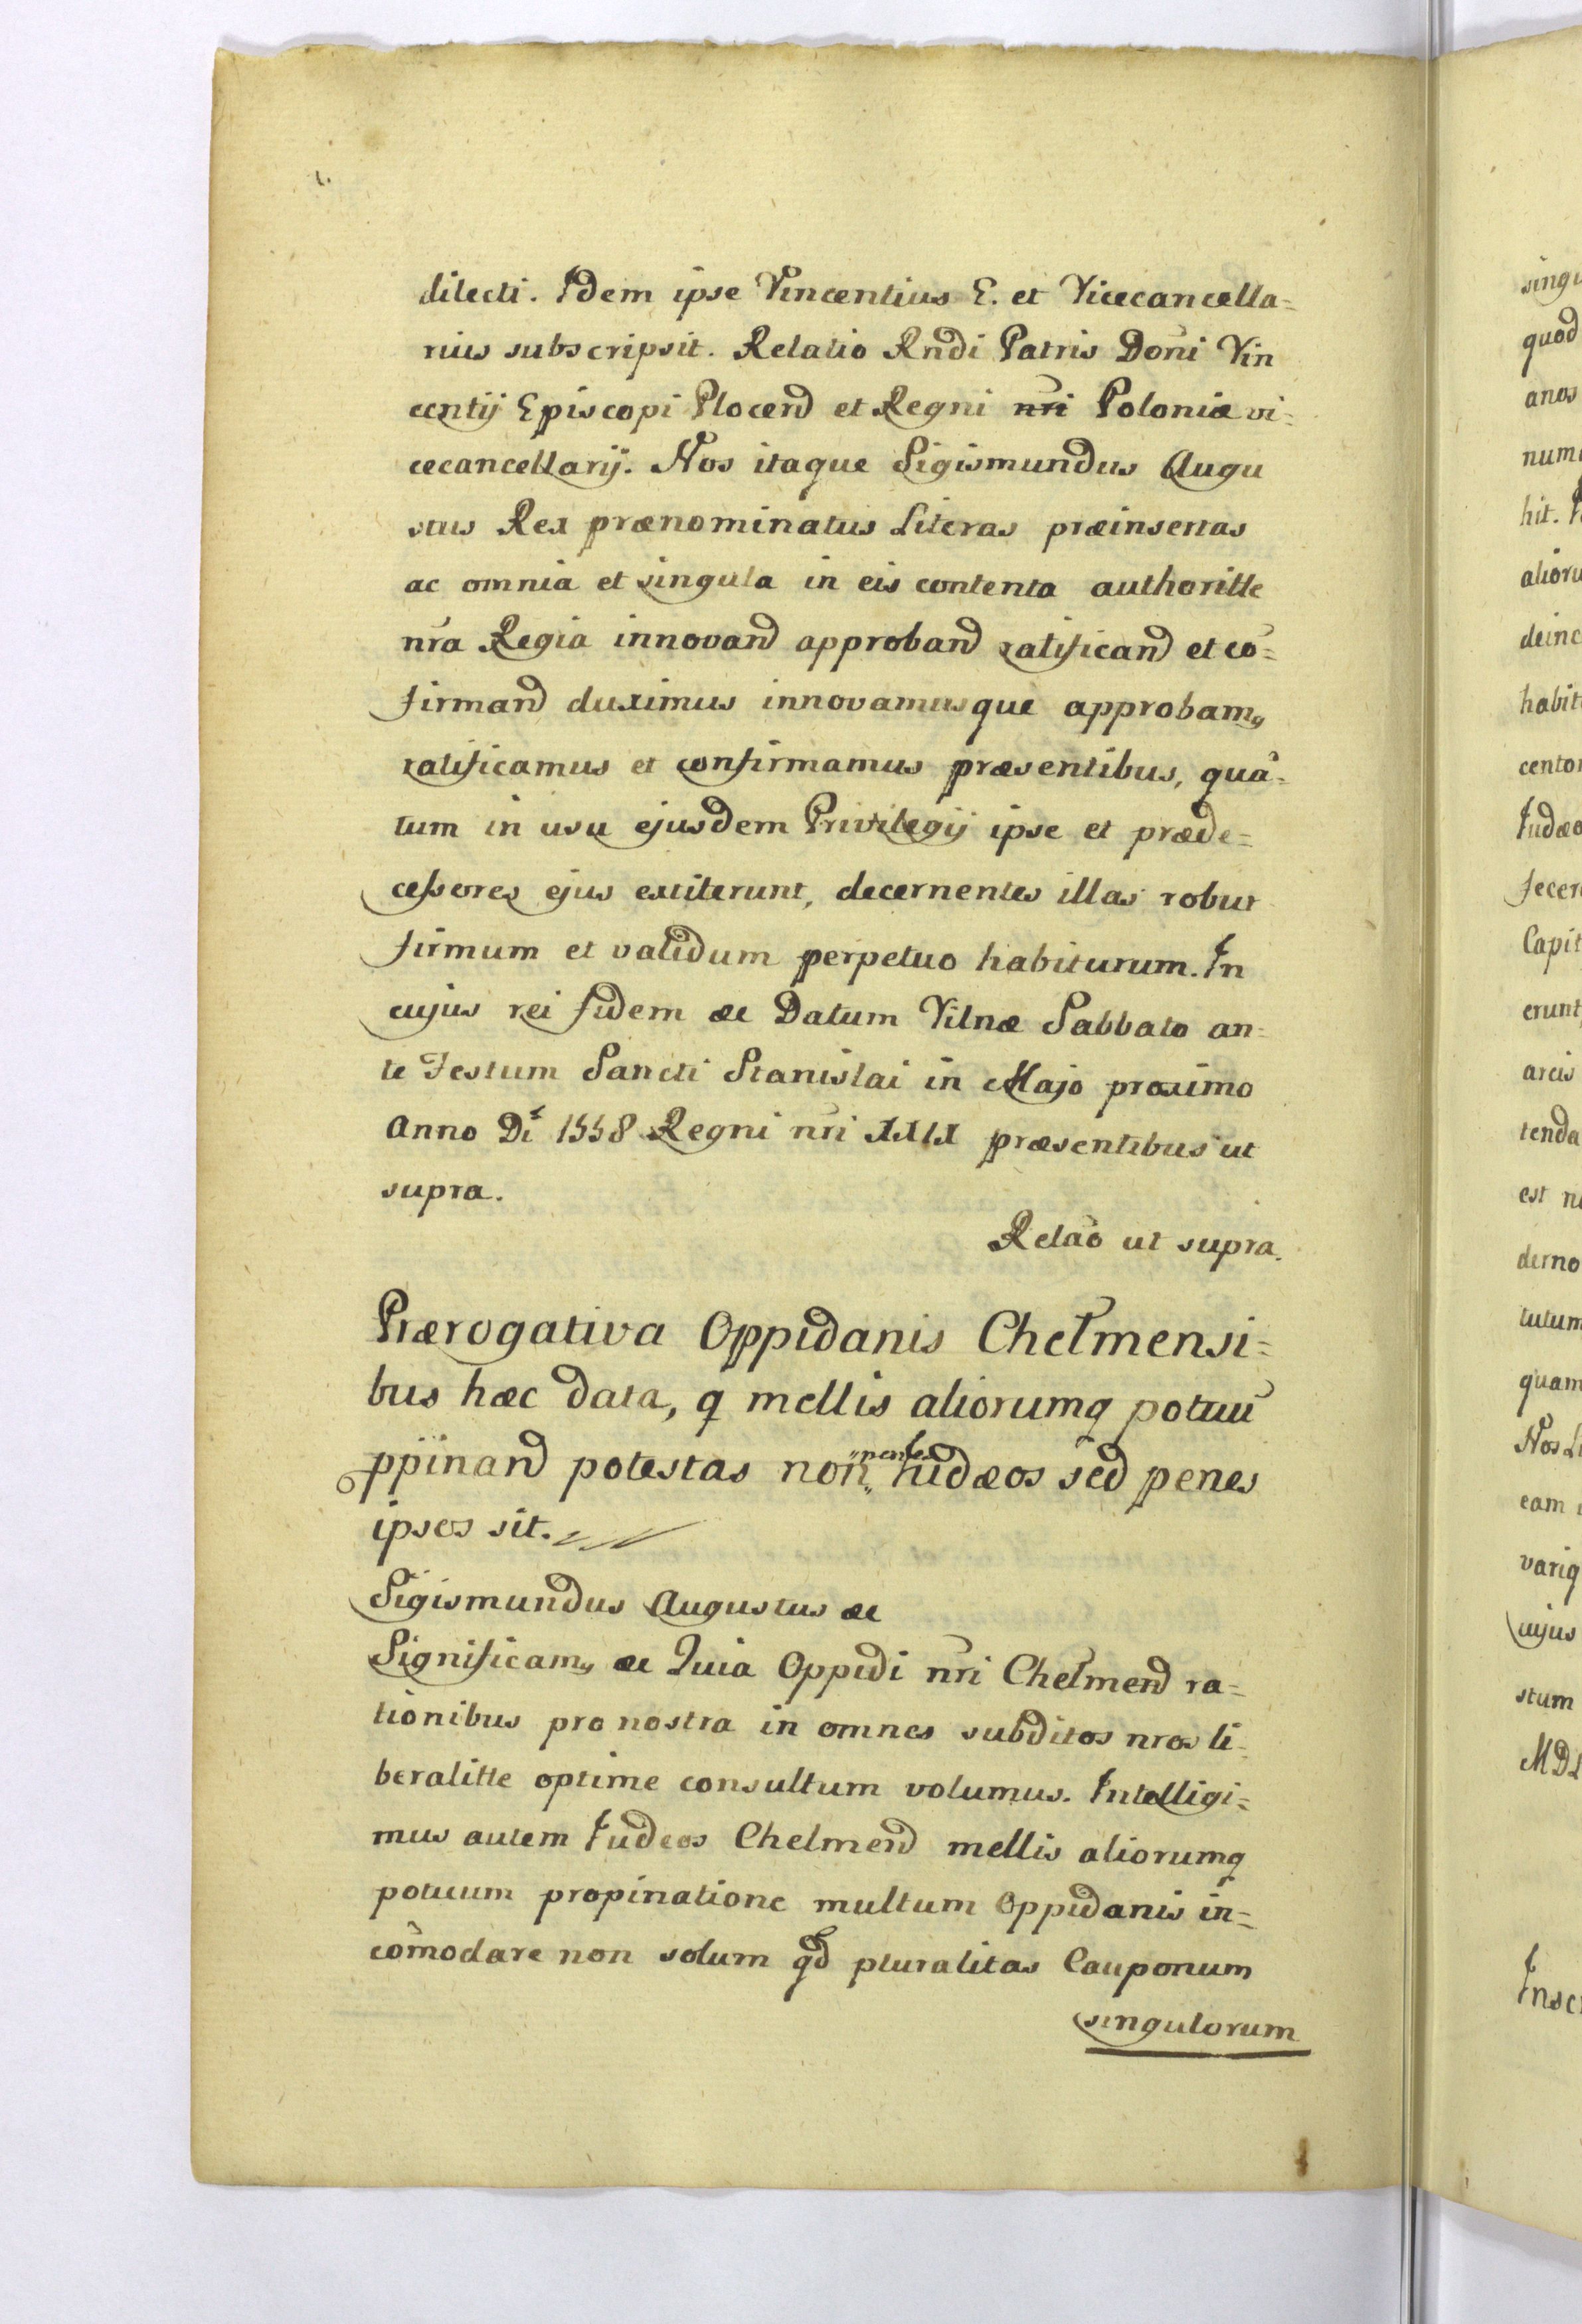 dilecti. Idem ipse Vincentius E. et Vicecancella=
rius subscripsit. Relatio Rndi Patris Doni Vin
centij Episcopi Plocend et Regni nri Poloniæ vi=
cecancellarij. Nos itaque Sigismundus Augu
stus Rex prænominatus Literas præinsertas
ac omnia et singula in eis contenta authoritte
nra Regia innovand approband ratificand et cō=
firmand duximus innovamusque approbam9
ratificamus et confirmamus præsentibus, quā=
tum in usu ejusdem Privilegij ipse et præde=
cessores ejus extiterunt, decernentes illas robur
firmum et validum perpetuo habiturum. In
cujus rei fidem æc Datum Vilnæ Sabbato an=
te Festum Sancti Stanislai in Majo proximo
Anno Di 1558 Regni nri XXIX præsentibus ut
supra.
Relāo ut supra.
Prærogativa Oppidanis Chełmensi=
bus hæc data, q mellis aliorumq potuū
ppinand potestas non „penes„ Iudæos sed penes
ipsos sit.
Sigismundus Augustus æc
Significam9 æc Quia Oppidi nri Chełmend ra=
tionibus pro nostra in omnes subditos nros li=
beralitte optime consultum volumus. Intelligi=
mus autem Iudeos Chelmend mellis aliorumq
potuum propinatione multum Oppidanis in=
cōmodare non solum qd pluralitas Cauponum
singulorum
singu
quod
anos
num
hit.
alioru
deinc
habit
centor
Iudæo
fecer
Capit
erunt
arcis
tenda
est n
derno
tutum
quam
Nos
eam
variq
cujus
stum
MDL
Inscr